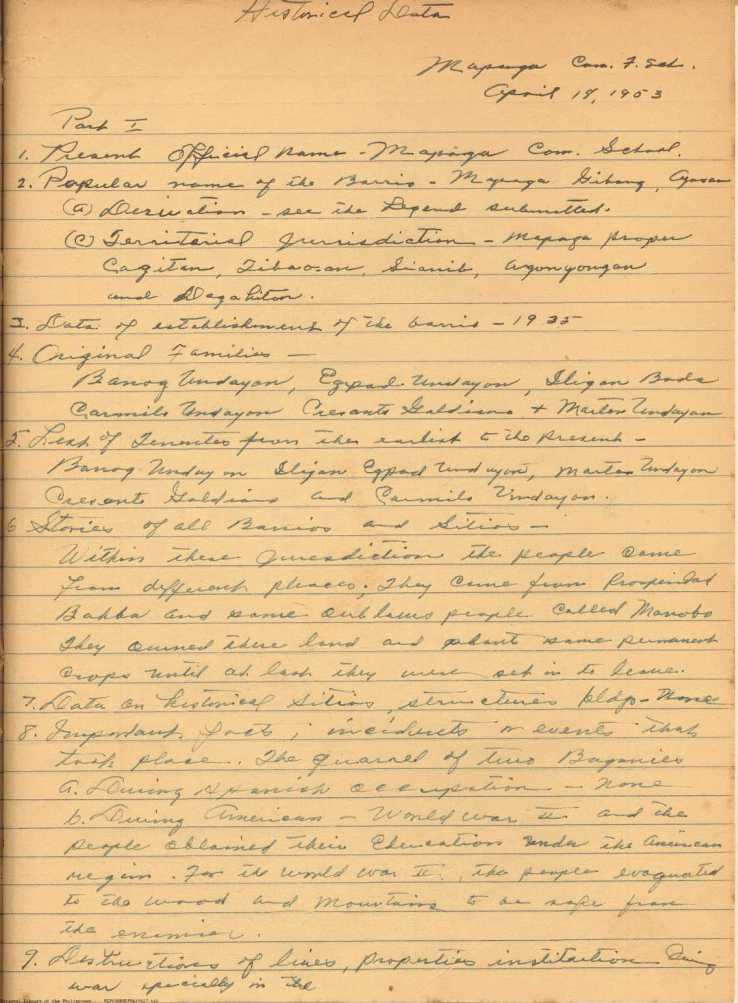 Historical Data
Mapaga Com. F. Sch.
April 18, 1953
Part I
1. Present Official Name - Mapaga Com. School.
2. Popular name of the Barrio - Mapaga Gibong, Agusan
(a) Derivation - see the Legend submitted.
(C) Territorial Jurisdiction - Mapaga proper
Cagitan, Tibaosan, Sianib,
and
3. Data of establishment of the barrio - 1935
4. Original Families -
Banog Undayon, Egpad Undayon, Iligan
Carmilo Undayon Cresente Galdiano + Martes Undayon
5. List of Tenentes from the earlist to the Present -
Banog Undayon Iligan Egpad Undayon, Martes Undayon
Cresente Galdiano and Carmilo Undayon.
6 Stories of all Barrios and Sitios -
Within these Jurisdiction the people came
from different places. They came from Prosperidad
and some outlaws people called Manobo
They owned these land and plant some permanent
crops until at last they were set in to leave.
7. Data on historical sitios, structures bldgs - None
8. Important facts, incidents or events that
took place. The quarrel of two Baganies
a. During Spanish occupation - None
b. During American - World War II and the
people obtained their Education under the American
regim. For the world war II, the people evaquated
to the wood and Mountains to be safe from
the enemies.
9. Destructions of lives, properties institution during
war specially in the
National Library of the Philippines